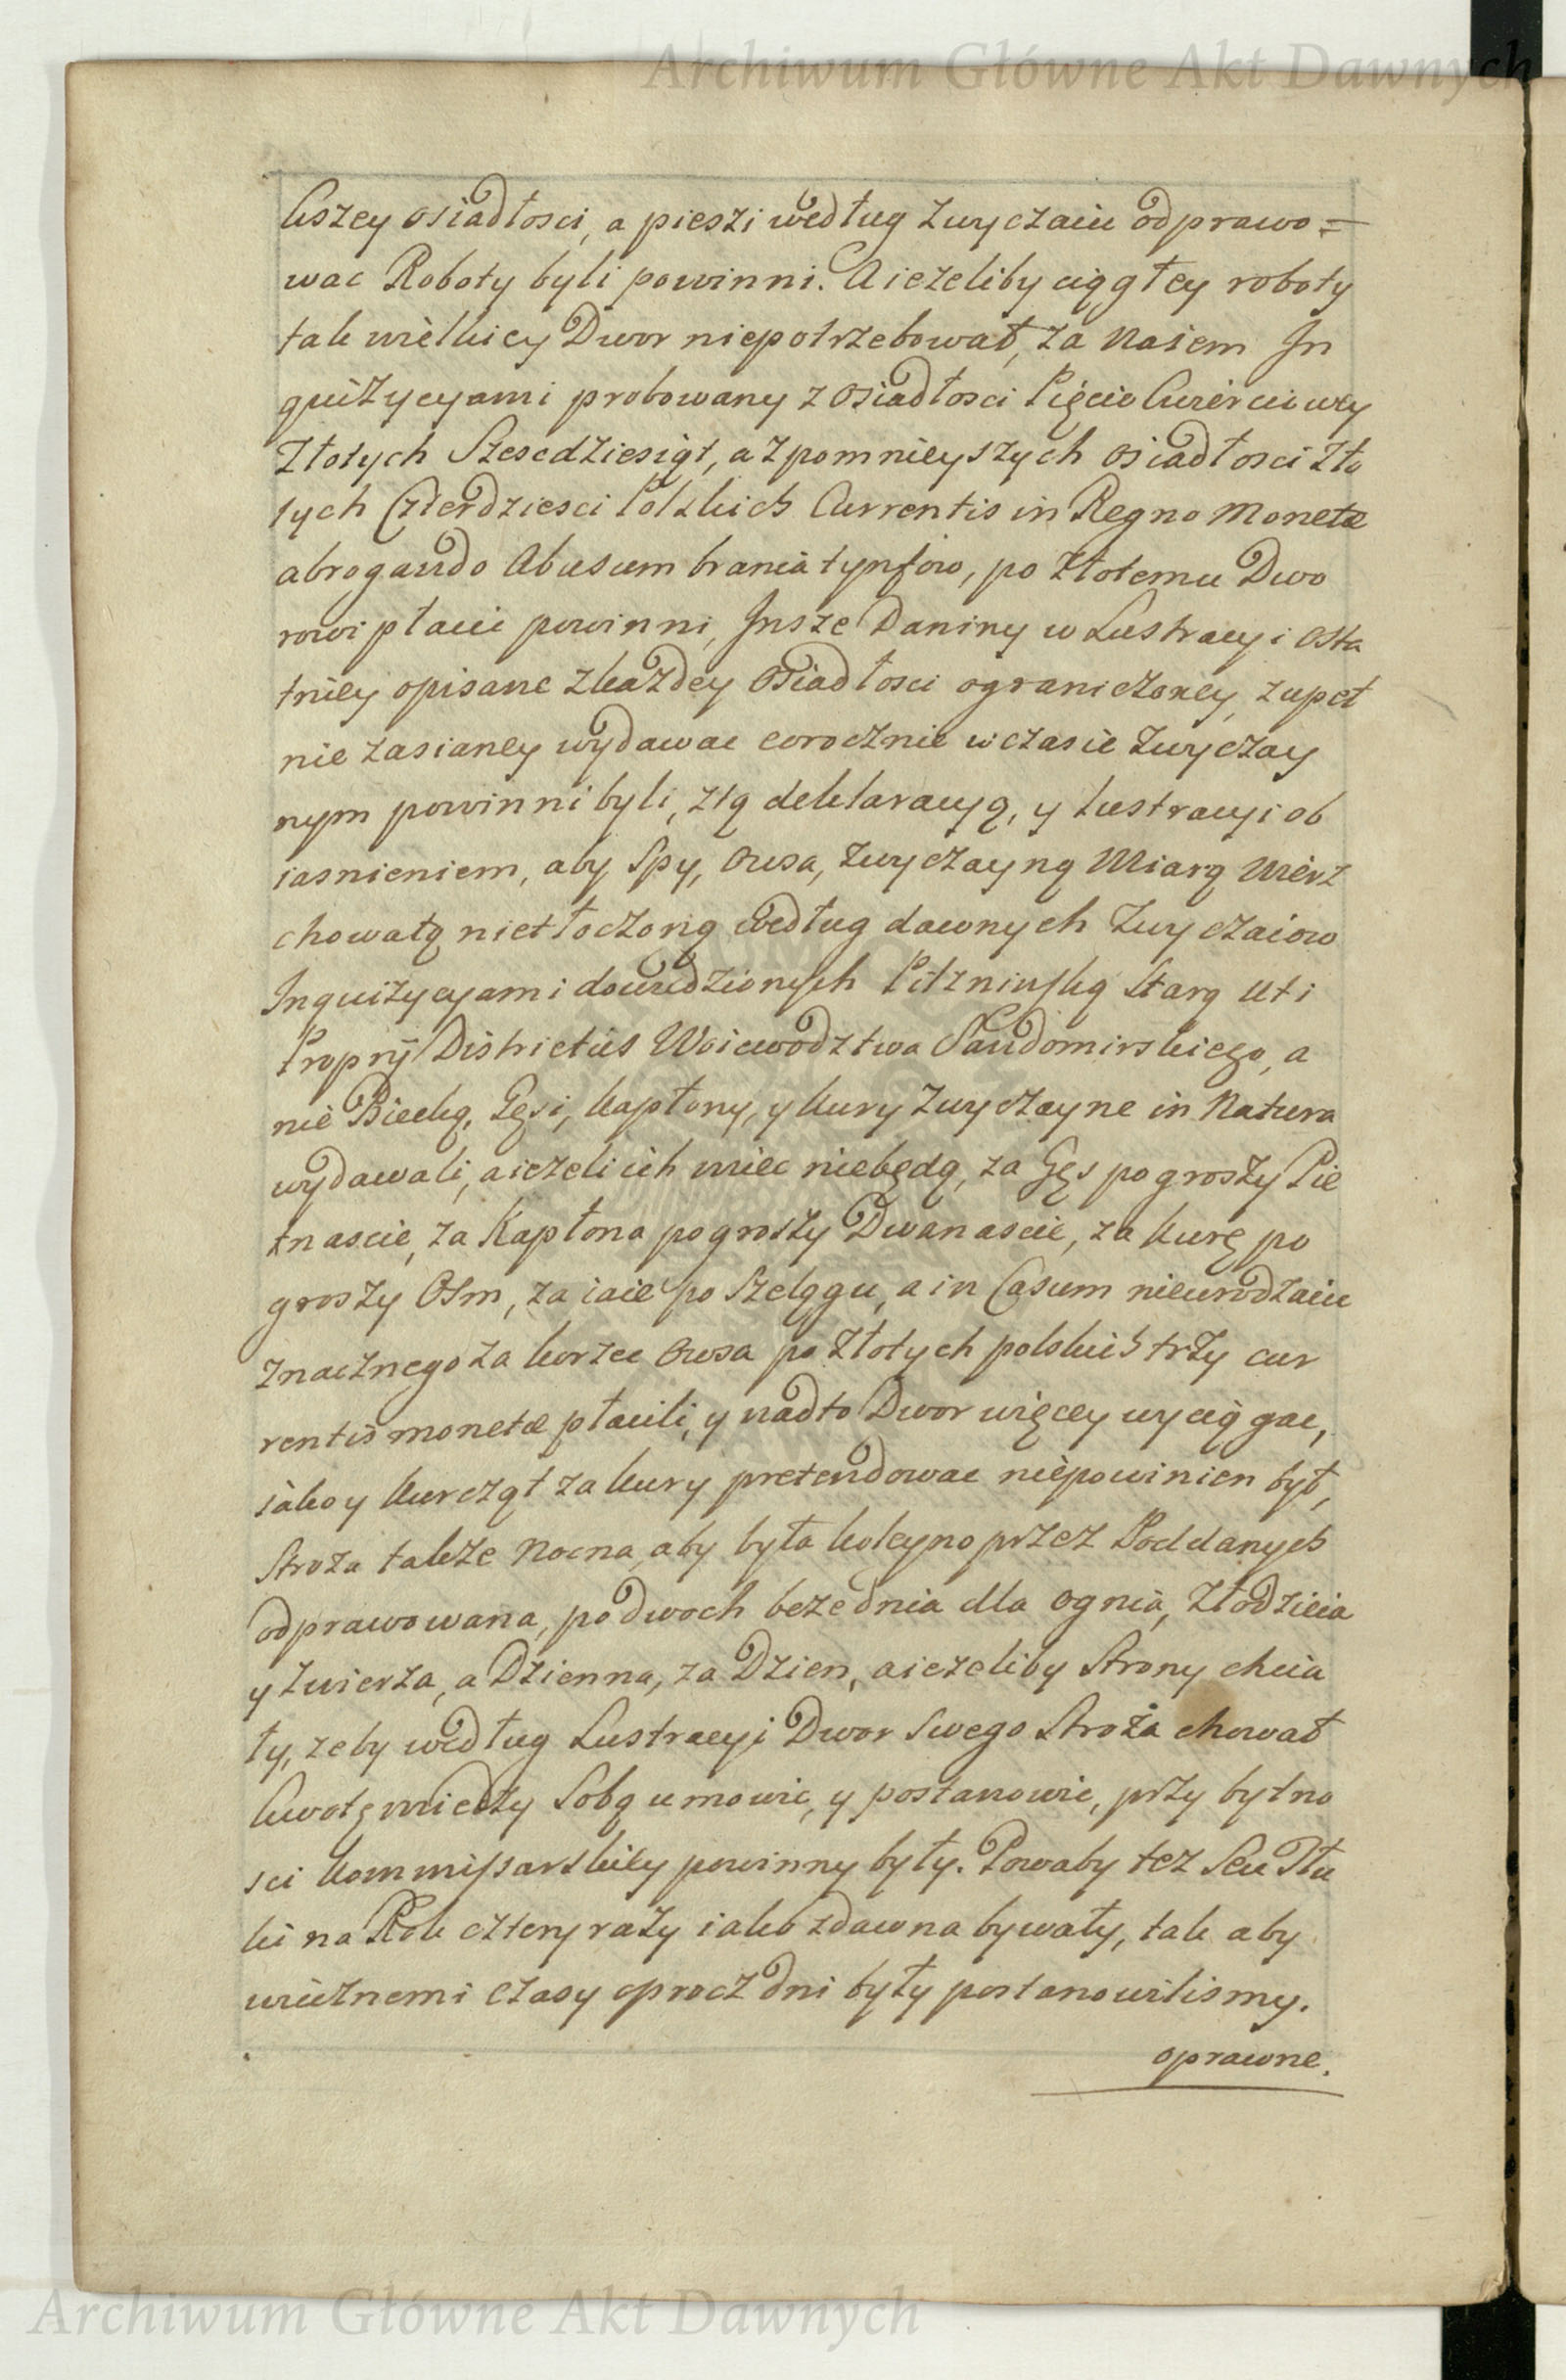 Archiwum Główne Akt Dawnych
kszey osiadłosci, a pieszi według zwyczaiu odprawo=
wac Roboty byli powinni. A ieżeliby ciągłey roboty
tak wielkiey Dwor niepotrzebował, za Naiem In
quizycyami probowany z osiadłosci Pięcio Cwierciowey
Złotych Szescdziesiąt, a z pomnieyszych osiadłosci Zło
tych Czterdziesci Polskich Currentis in Regno Monetæ
abrogando Abusum brania tynfow, po Złotemu Dwo
rowi płacić powinni, Insze Daniny w Lustracyi osta
tniey opisane z każdey osiadłosci ograniczoney, zupeł
nie zasianey wydawac corocznie w czasie zwyczay
nym powinni byli, z tą deklaracyą, y Lustracyi ob
iasnieniem, aby Spy, Owsa, zwyczayną Miarą Wierz
chowatą nietłoczoną według dawnych zwyczaiow
Inquizycyami dowiedzionych Pilznińską Starą uti
Proprij Districtûs Woiewodztwa Sandomirskiego, a
nie Biecką, Gęsi, Kapłony, y Kury zwyczayne in Natura
wydawali, a ieżeli ich miec niebędą, za Gęs po groszy Pie
tnascie, za Kapłona po groszy Dwanascie, za Kurę po
groszy Osm, za iaie po Szelągu, a in Casum nieurodzaiu
znacznego za korzec Owsa po Złotych polskich trzy cur
rentis monetæ płacili, y nadto Dwor więcey wyciągac,
iako y Kurcząt za Kury pretendowac niepowinien był,
Stroza także Nocna, aby była koleyno przez Poddanych
odprawowana, po dwoch beze dnia dla Ognia, Złodzieia
y Zwierza, a Dzienna, za Dzien, a ieżeliby Strony chcia
ły, zeby według Lustracyi Dwor Swego Stroża chował
kwotę miedzy Sobą umowic, y postanowic, przy bytno
sci Kommissarskiey powinny były. Powaby tez Seu Tłu
ki na Rok cztery razy iako zdawna bywały, tak aby
wiecznemi czasy oprocz dni były postanowilismy.
oprawne.
Archiwum Główne Akt Dawnych